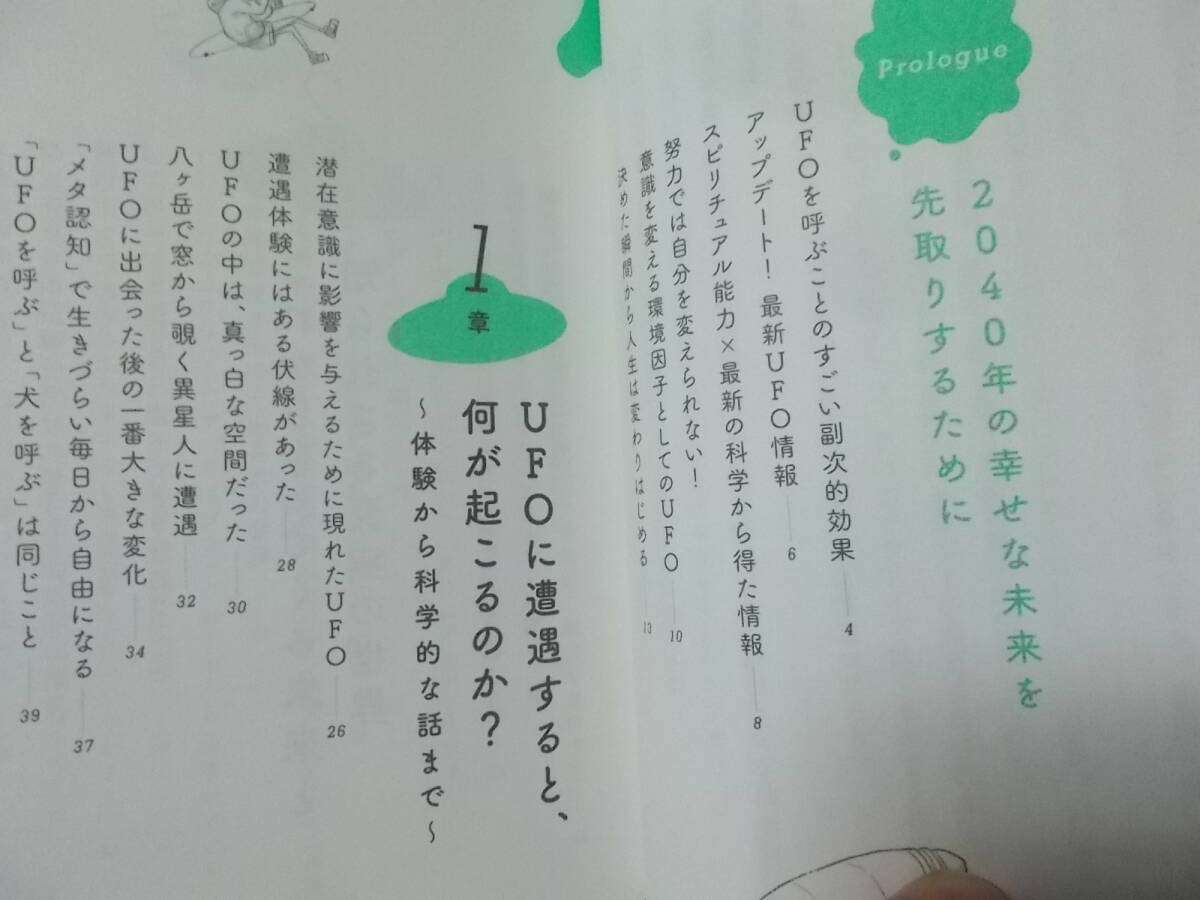 Prologue
2040年の幸せな未来を
先取りするために
UFOを呼ぶことのすごい副次的効果 4
アップデート！ 最新UFO情報 6
スピリチュアル能力×最新の科学から得た情報 8
努力では自分を変えられない！
意識を変える環境因子としてのUFO 10
決めた瞬間から人生は変わりはじめる 13
1章
UFOに遭遇すると、
何が起こるのか？
〜体験から科学的な話まで〜
潜在意識に影響を与えるために現れたUFO 26
遭遇体験にはある伏線があった 28
UFOの中は、真っ白な空間だった 30
八ヶ岳で窓から覗く異星人に遭遇 32
UFOに出会った後の一番大きな変化 34
「メタ認知」で生きづらい毎日から自由になる 37
「UFOを呼ぶ」と「犬を呼ぶ」は同じこと 39